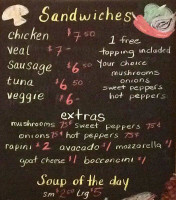 Sandwiches
chicken $7.50
veal $7-
Sausage $6
tuna $6.50
veggie $6-
1 free
topping included
Your choice
mushrooms
onions
sweet peppers
hot peppers
extras
mushrooms 75¢ sweet peppers 75¢
onions 75¢ hot peppers 75¢
rapini $2 avocado $1 mozzarella $1
goat cheese $1 bocconcini $1
Soup of the day
sm $3.00 Lrg $5